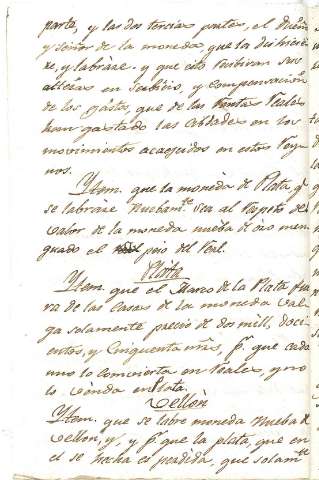 parte, y las dos tercias partes, el Dueño
y señor de la moneda, que la dishiciese
xe, y labrare. y que esto recibiran sus
altezas en servicio, y compensacion
de los gastos, que de las Rentas Reales
han gastado las Cibdades en los
movimientos acaecidos en estos Rey
nos.
Ytem. que la moneda de Plata, q.
se labrare nuebamte. sea al respeto del
valor de la moneda nueba de oro men
guado el peso del Real.
Plata
Ytem. que el Marco de la Plata fue
ra de las Casas de la moneda val
ga solamente precio de dos mill, doci
entos, y Cinquenta mrs, p.r que cada
uno lo convierta en Reales, y no
lo venda en Plata.
Vellon
Ytem. que se labre moneda nueba de
vellon, y, y p.r que la plata, que en
el se hecha es perdida, que solamte